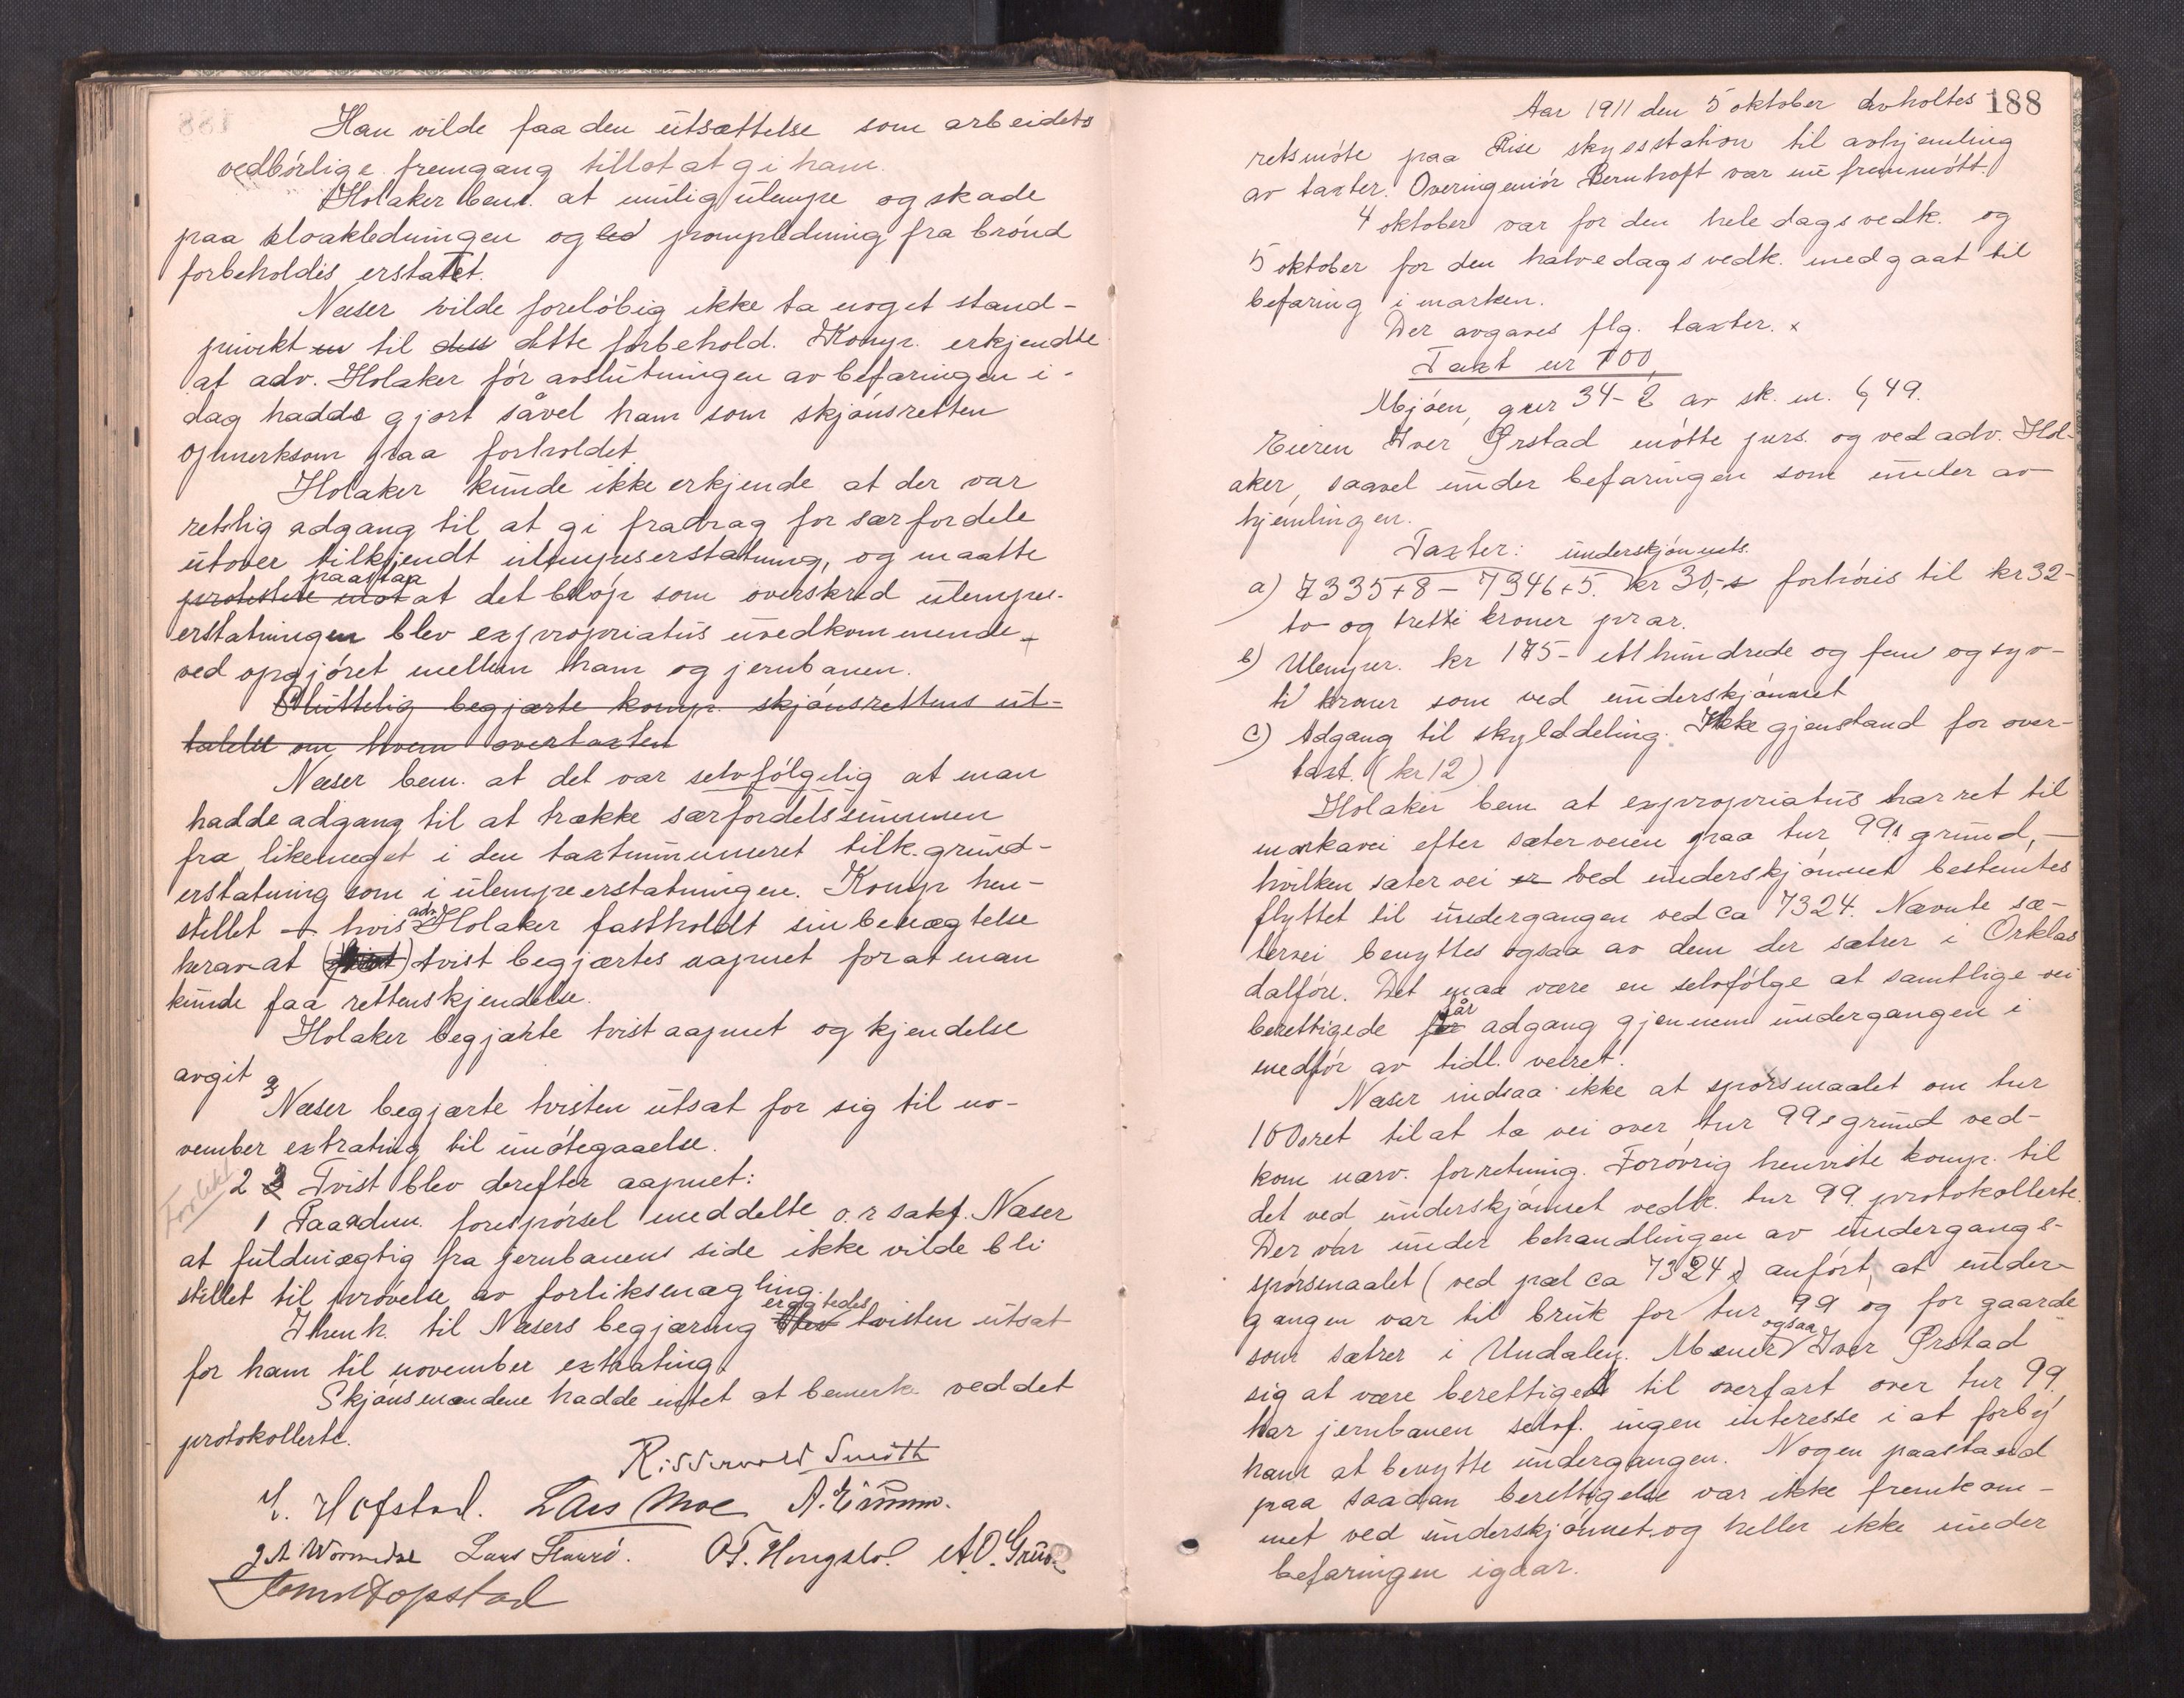 Han vilde faa den utsættelse som arbeidets
vedbørlige fremgang tillot at gi ham.
Holaker bem. at mulig ulempe og skade
paa kloakledningen og led pumpledning fra brønd
forbeholdes erstattet.
Næser vilde foreløbig ikke ta noget stand-
punkt en til den dette forbehold. Komp. erkjendte
at adv. Holaker før avslutningen av befaringen i-
dag hadde gjort såvel ham som skjønsretten
opmerksom paa forholdet.
Holaker kunde ikke erkjende at der var
retslig adgang til at gi fradrag for særfordele
utover tilkjendt ulempeserstatning, og maatte
paastaa
protestere mot at det beløp som overskred ulempes-
erstatningen blev expropriatus uvedkommende
ved opgjøret mellem ham og jernbanen.
Sluttelig begjærte komp. skjønsrettens ut-
talelse om hvem overtaxten
Næser bem. at det var selvfølgelig at man
hadde adgang til at trække særfordelssummen
fra likemeget i den taxtnummeret tilk. grund-
erstatning som i ulempeerstatningen. Komp hen-
stillet – hvis adv. Holaker fastholdt sin benægtelse
herav at (tvist) tvist begjærtes aapnet for at man
kunde faa rettens kjendelse.
Holaker begjærte tvist aapnet og kjendelse
avgit
Næser begjærte tvisten utsat for sig til no-
vember extrating til imøtegaaelse.
Forlik!
2 Tvist blev derefter aapnet:
1 Paa adm. forespørsel meddelte o.r sakf. Næser
at fuldmægtig fra jernbanens side ikke vilde bli
stillet til prøvelse av forliksmægling.
eragtedes
I henh. til Næsers begjæring blev tvisten utsat
for ham til november extrating.
Skjønsmændene hadde intet at bemerke ved det
protokollerte.
Risservold Smith
E. Hofstad. Lars Moe A. Eimun.
J A Wormdal Lars Staurø. O T. Hengstol. A O. Grut
John Hopstad
188
Aar 1911 den 5 oktober avholtes
retsmøte paa Rise skysstation til avhjemling
av taxter. Overingeniør Bernhoft var nu fremmøtt.
4 oktober var for den hele dags vedk. og
5 oktober for den halve dags vedk. medgaat til
befaring i marken.
Der avgaves flg. taxter. x
Taxt nr 100
Mjøen, gnr 34-2 av sk. m. 6,49.
Eieren Iver Ørstad møtte pers. og ved adv. Hol-
aker, saavel under befaringen som under av-
hjemlingen.
Taxter: underskjønnets.
a) 7335+8 – 7346+5. kr 30,- forhøies til kr 32-
to- og tretti kroner pr ar.
b) Ulemper. kr 175- ett hundrede og fem og syv-
ti kroner som ved underskjønnet
c) Adgang til skylddeling. Ikke gjenstand for over-
taxt. (kr 12)
Holaker bem at expropriatus har ret til
markavei efter sæterveien paa tnr. 99s grund, –
hvilken sætervei er ved underskjønnet bestemtes
flyttet til undergangen ved ca 7324. Nævnte sæ-
tervei benyttes ogsaa av dem der sætrer i Orklas
dalføre. Det maa være en selvfølge at samtlige vei-
får
berettigede før adgang gjennem undergangen i
medfør av tidl. veiret.
Næser indsaa ikke at spørsmaalet om tnr
100s ret til at ta vei over tnr 99s grund ved-
kom nærv. forretning. Forøvrig henviste komp. til
det ved underskjønnet vedk. tnr 99 protokollerte.
Der var under behandlingen av undergangs-
spørsmaalet (ved pæl ca 7324) anført, at under-
gangen var til bruk for tnr 99 og for gaarde
ogsaa
som sætrer i Undalen. Mener Iver Ørstad
sig at være berettiget til overfart over tnr 99.
har jernbanen selvf. ingen interesse i at forby
ham at benytte undergangen. Nogen paastand
paa saadan berettigelse var ikke fremkom-
met ved underskjønnet, og heller ikke under
befaringen igaar.